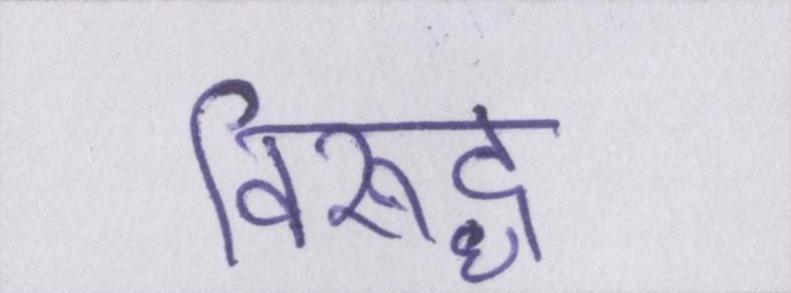 विरूद्ध